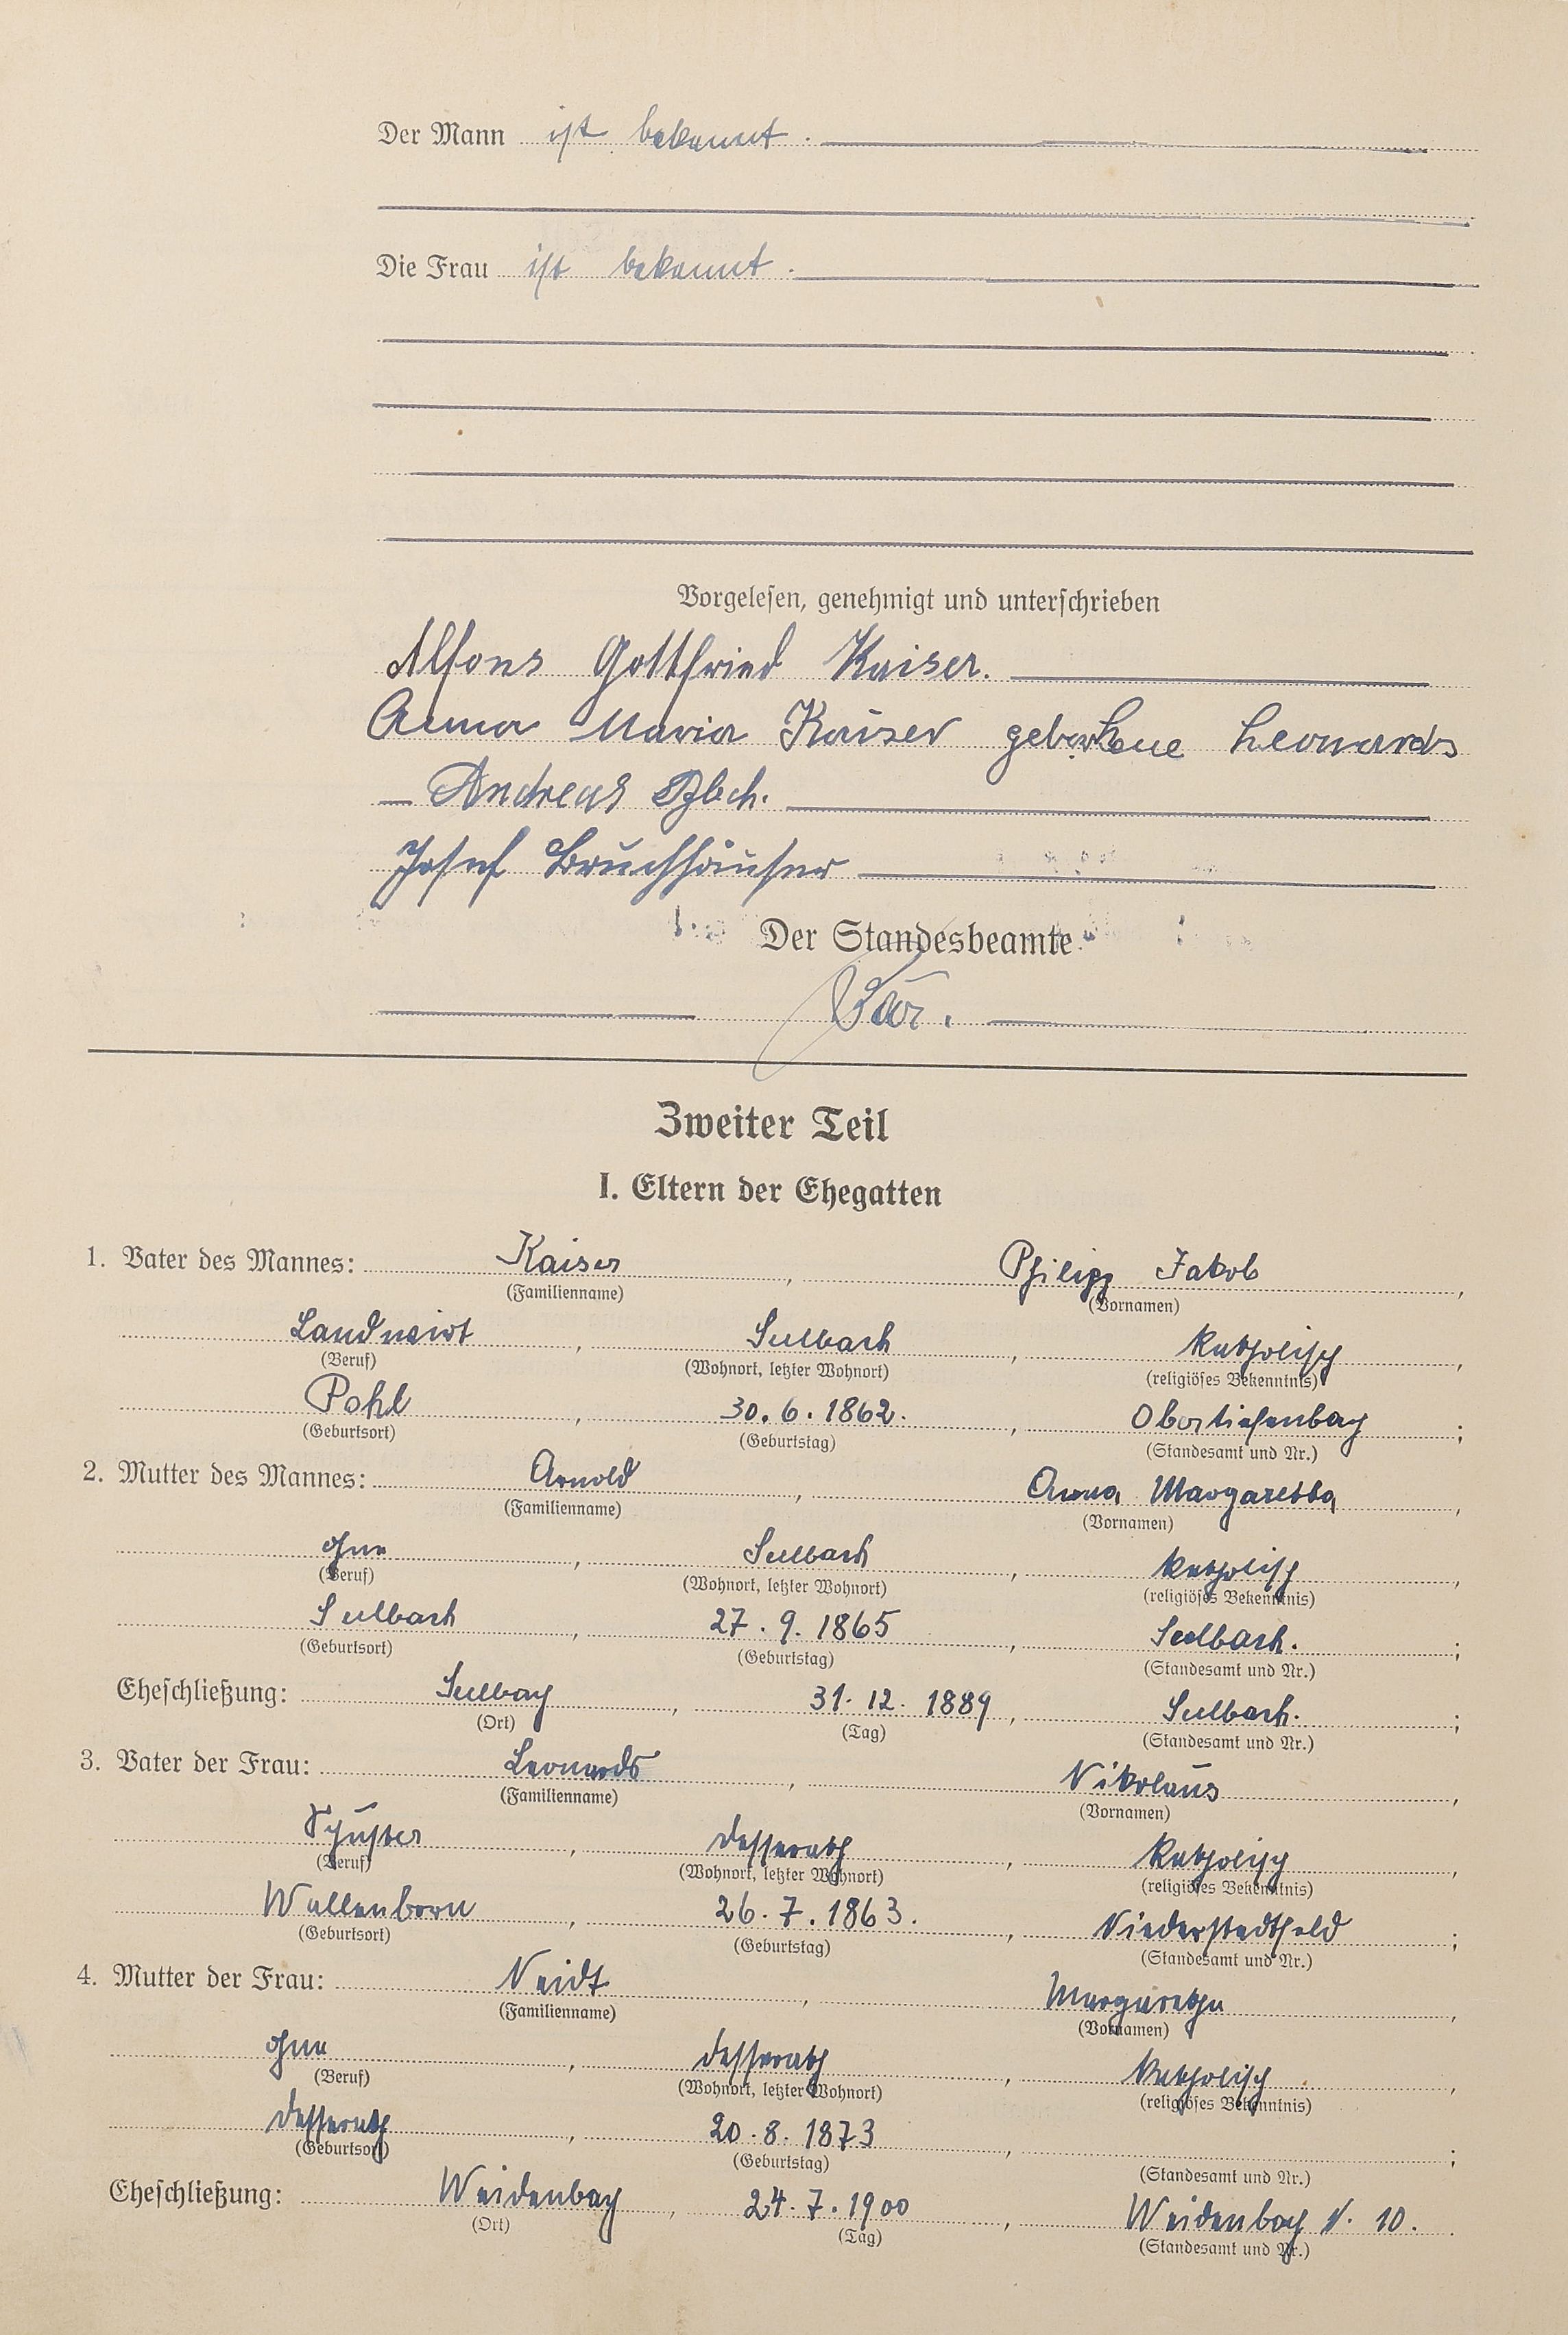 Der Mann ist bekannt.
Die Frau ist bekannt.
Vorgelesen, genehmigt und unterschrieben
Alfons Gottfried Kaiser.
Anna Maria Kaiser geborene Leonards
Andreas
Josef Bruchhäuser
Der Standesbeamte
Zweiter Teil
I. Eltern der Ehegatten
1. Vater des Mannes: Kaiser, Philipp Jakob,
(Familienname) (Vornamen)
Landwirt, Seelbach, katholisch,
(Beruf) (Wohnort, letzter Wohnort) (religiöses Bekenntnis)
Pohl, 30.6.1862., Obertiefenbach;
(Geburtsort) (Geburtstag) (Standesamt und Nr.)
2. Mutter des Mannes: Arnold, Anna Margaretha,
(Familienname) (Vornamen)
ohne, Seelbach, katholisch,
(Beruf) (Wohnort, letzter Wohnort) (religiöses Bekenntnis)
Seelbach, 27.9.1865, Seelbach.;
(Geburtsort) (Geburtstag) (Standesamt und Nr.)
Eheschließung: Seelbach, 31.12.1889, Seelbach.;
(Ort) (Tag) (Standesamt und Nr.)
3. Vater der Frau: Leonards, Nikolaus,
(Familienname) (Vornamen)
Schuster, Desserath, katholisch,
(Beruf) (Wohnort, letzter Wohnort) (religiöses Bekenntnis)
Wallenborn, 26.7.1863., Niederstadtfeld;
(Geburtsort) (Geburtstag) (Standesamt und Nr.)
4. Mutter der Frau: Neidt, Margaretha,
(Familienname) (Vornamen)
ohne, Desserath, katholisch,
(Beruf) (Wohnort, letzter Wohnort) (religiöses Bekenntnis)
Desserath, 20.8.1873, ;
(Geburtsort) (Geburtstag) (Standesamt und Nr.)
Eheschließung: Weidenbach, 24.7.1900, Weidenbach N. 10.
(Ort) (Tag) (Standesamt und Nr.)